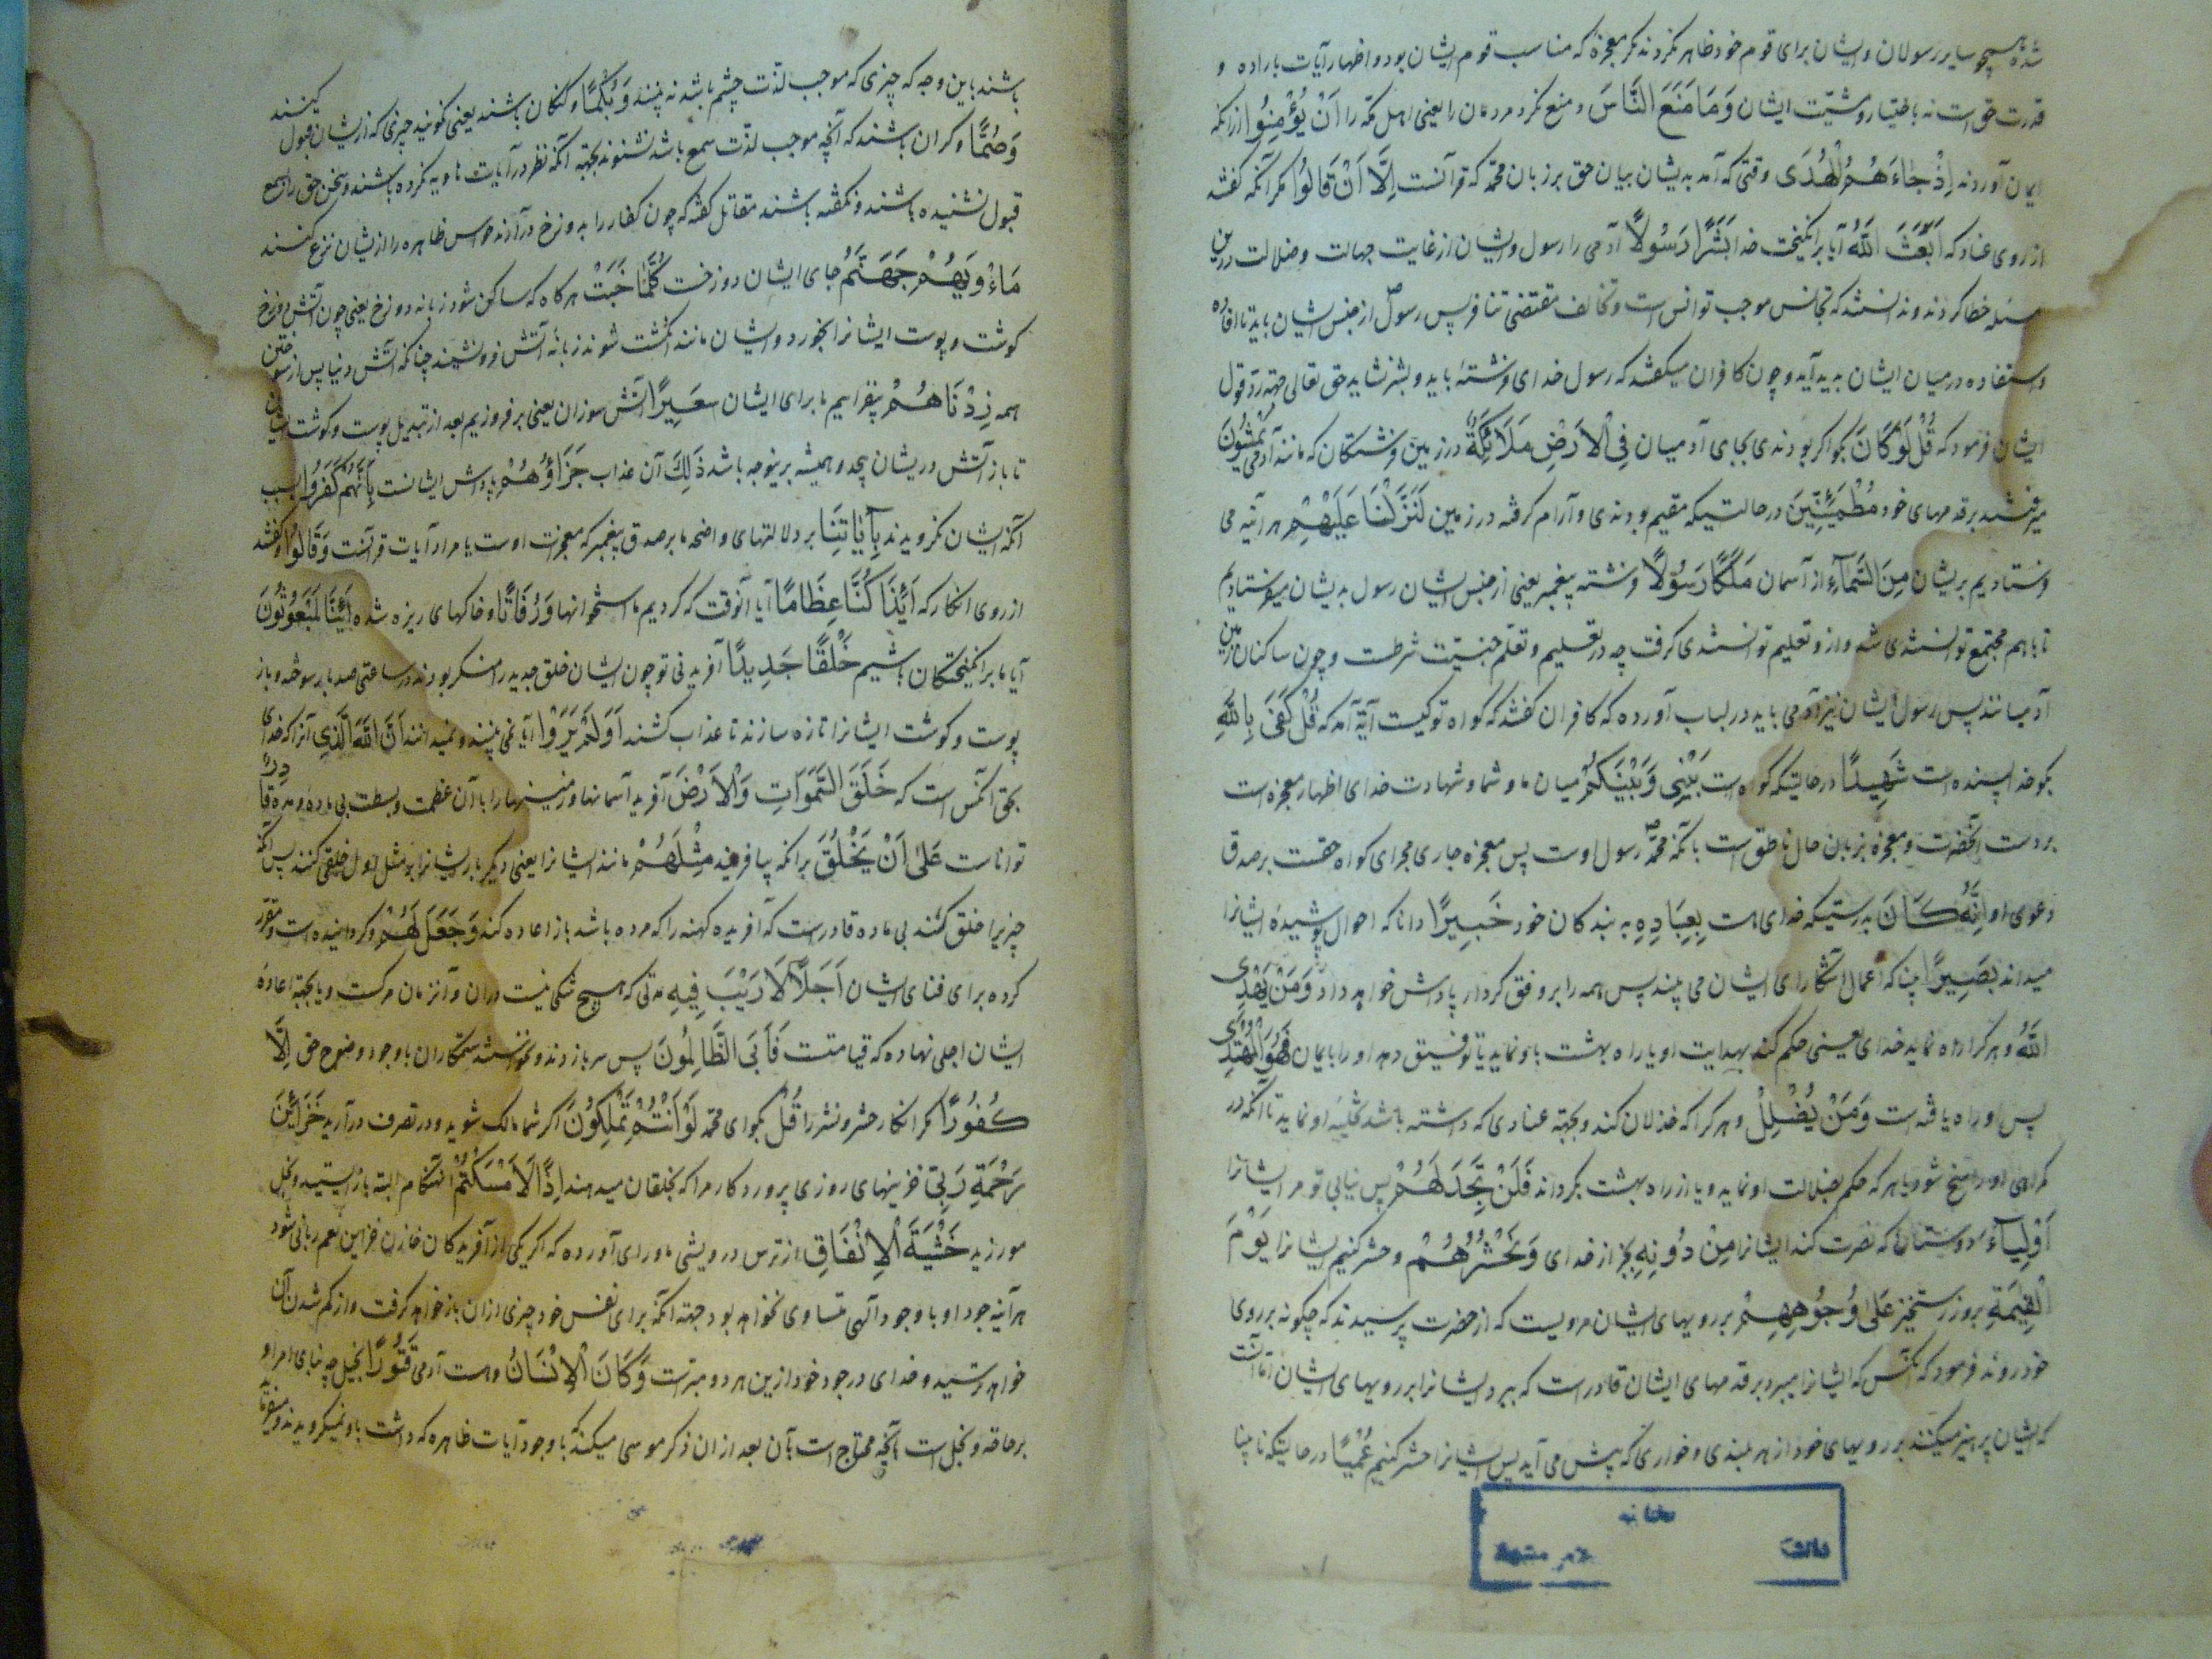 شده همچو سایر رسولان و ایشان برای قوم خود ظاهر نکردند مگر معجزهٔ که مناسب قوم ایشان بود و اظهار آیات باراده و
قدرت حق است نه باختیار و مشیّت ایشان وَمَا مَنَعَ النَّاسَ و منع نکرد مردمان را یعنی اهل مکّه را اَنْ یُؤْمِنُوا از آنکه
ایمان آوردند اِذْ جَاءَهُمُ الْهُدَى وقتی که آمد بدیشان بیان حق بر زبان محمّد که قرآنست اِلَّا اَنْ قَالُوا مگر آنکه گفتند
از روی عناد که اَبَعَثَ اللّٰهُ آیا برانگیخت خدا بَشَرًا رَسُولًا آدمی را رسول و ایشان از غایت جهالت و ضلالت درین
مسئله خطا کردند و ندانستند که تجانس موجب توانس است و تخالف مقتضی تنافر پس رسول از جنس ایشان باید تا افاده
و استفاده در میان ایشان پدید آید و چون کافران میگفتند که رسول خدای فرشته باید و بشر نشاید حق تعالی جهة ردّ قول
ایشان فرمود که قُلْ لَوْ كَانَ بگو اگر بودندی بجای آدمیان فِی الْاَرْضِ مَلَائِكَةٌ در زمین فرشتگان که مانند آدمی یَمْشُونَ
میرفتند بر قدمهای خود مُطْمَئِنِّینَ در حالتیکه مقیم بودندی و آرام گرفته در زمین لَنَزَّلْنَا عَلَیْهِمْ هر آینه می
فرستادیم بریشان مِنَ السَّمَاءِ از آسمان مَلَكًا رَسُولًا فرشته پیغمبر یعنی از جنس ایشان رسول بدیشان میفرستادیم
تا باهم مجتمع توانستندی شد و ازو تعلیم توانستندی گرفت چه در تعلیم و تعلّم جنسیّت شرطست و چون ساکنان زمین
آدمیانند پس رسول ایشان نیز آدمی باید در لباب آورده که کافران گفتند که گواه تو کیست آیة آمد که قُلْ كَفَى بِاللّٰهِ
بگو خدا پسنده است شَهِیدًا در حالتیکه گواه است بَیْنِی وَبَیْنَكُمْ میان ما و شما و شهادت خدای اظهار معجزه است
بر دست آنحضرت و معجزه بزبان حال ناطق است بآنکه محمّد رسول اوست پس معجزه جاری مجرای گواه حقست بر صدق
دعوی او اِنَّهُ كَانَ بدرستیکه خدای هست بِعِبَادِهِ به بندکان خود خَبِیرًا دانا که احوال پوشیدهٔ ایشانرا
میداند بَصِیرًا بینا که اعمال آشکارای ایشان می بیند پس همه را بر وفق کردار پاداش خواهد داد وَمَنْ یَهْدِى
اللّٰهُ و هر کرا راه نماید خدای یعنی حکم کند بهدایت او یا راه بهشت باو نماید یا توفیق دهد او را بایمان فَهُوَ الْمُهْتَدِى
پس او راه یافته است وَمَنْ یُضْلِلْ و هر کرا که خذلان کند و بجهة عنادی که داشته باشد تخلیهٔ او نماید تا آنکه در
کمراهی او راسخ شود یا هر که حکم بضلالت او نماید و یا از راه بهشت بگرداند فَلَنْ تَجِدَ لَهُمْ پس نیابی تو مر ایشانرا
اَوْلِیَاءَ دوستان که نصرت کنند ایشانرا مِنْ دُونِهِ بجز از خدای وَنَحْشُرُهُمْ و حشر کنیم ایشانرا یَوْمَ
الْقِیٰمَةِ بروز رستخیز عَلَى وُجُوهِهِمْ بر رویهای ایشان مرویست که از حضرت پرسیدند که چگونه بر روی
خود روند فرمود که آنکس که ایشانرا میبرد بر قدمهای ایشان قادر است که ببرد ایشانرا بر رویهای ایشان
که ایشان پرهیز میکنند بر رویهای خود از هر بلندی و خواری که پیش می آید پس ایشانرا حشر کنیم عُمْیًا در حالتیکه نابینا
باشند باین وجه که چیزی که موجب لذّت چشم باشد نه بینند وَبُكْمًا و گنگان باشند یعنی نگویند چیزی که از ایشان قبول کنند
وَصُمًّا و کران باشند که آنچه موجب لذّت سمع باشد نشنوند بجهة آنکه نظر در آیات نکرده باشند و سخن حق را بسمع
قبول نشنیده باشند و نگفته باشند مقاتل گفته که چون کفار را بدوزخ درآرند حواس ظاهره را از ایشان نزع کنند
مَأْوٰیهُمْ جَهَنَّمُ جای ایشان دوزخست كُلَّمَا خَبَتْ هرکاه که ساکن شود زبانه دوزخ یعنی چون آتش دوزخ
گوشت و پوست ایشانرا بخورد و ایشان مانند انگشت شوند زبانه آتش فرو نشیند چنانکه آتش دنیا پس از سوختن
همه زِدْنَاهُمْ بیفزاییم ما برای ایشان سَعِیرًا آتش سوزان یعنی برفروزیم بعد از تبدیل پوست و گوشت ایشان
تا باز آتش در ایشان پیچد و همیشه برینوجه باشد ذٰلِكَ آن عذاب جَزَاؤُهُمْ پاداش ایشانست بِاَنَّهُمْ كَفَرُوا بسبب
آنکه ایشان نگرویدند بِآیَاتِنَا بر دلالتهای واضحه ما بر صدق پیغمبر که معجزات اوست یا مراد آیات قرآنست وَقَالُوا و گفتند
از روی انکار که اَئِذَا كُنَّا عِظَامًا آیا آنوقت که گردیم ما استخوانها وَرُفَاتًا و خاکهای ریزه شده اَئِنَّا لَمَبْعُوثُونَ
آیا ما برانگیختگان باشیم خَلْقًا جَدِیدًا آفریدنی نو چون ایشان خلق جدید را منکر بودند در ساعتی صد بار سوخته و باز
پوست و گوشت ایشانرا تازه سازند تا عذاب کشند اَوَلَمْ یَرَوْا آیا نمی بینند و نمیدانند اَنَّ اللّٰهَ الَّذِی آنرا که خدای
بحق آنکس است که خَلَقَ السَّمٰوَاتِ وَالْاَرْضَ آفرید آسمانها و زمینها را با آن عظمت و بسطت بی ماده و مدّة قَادِرٌ
توانا است عَلَى اَنْ یَخْلُقَ بر آنکه بیافریند مِثْلَهُمْ مانند ایشانرا یعنی دیگر بار ایشانرا بمثل اول خلقی کنند پس آنکه
چیزی را خلق کند بی ماده قادر است که آفریده کهنه را که مرده باشد باز اعاده کند وَجَعَلَ لَهُمْ و گردانیده است و مقرّر
کرده برای فنای ایشان اَجَلًا لَا رَیْبَ فِیهِ مدتی که هیچ شکی نیست در آن و آن زمان مرگست و یا بجهة اعادهٔ
ایشان اجلی نهاده که قیامتست فَاَبَى الظَّالِمُونَ پس سر باز زدند و نخواستند ستمکاران با وجود وضوح حق اِلَّا
كُفُورًا مگر انکار حشر و نشر را قُلْ بگو ای محمّد لَوْ اَنْتُمْ تَمْلِكُونَ اگر شما مالک شوید و در تصرف درآرید خَزَائِنَ
رَحْمَةِ رَبِّى خزینهای روزی پروردگار مرا که بخلقان میدهند اِذًا لَاَمْسَكْتُمْ آنهنگام البته باز ایستید و بخل
ورزید خَشْیَةَ الْاِنْفَاقِ از ترس درویشی ماورای آورده که اگر یکی از آفریدگان خازن خزاین نعم ربانی شود
هر آینه جود او با وجود الهی متساوی نخواهد بود جهة آنکه برای نفس خود چیزی از آن باز خواهد گرفت و از کم شدن آن
خواهد ترسید و خدای در جود خود ازین هر دو مبرّاست وَكَانَ الْاِنْسَانُ و هست آدمی قَتُورًا بخیل چه بنای امر او
بر حاقه و بخل است بآنچه محتاج است بآن بعد از آن ذکر موسی میکند که با وجود آیات ظاهره که داشت باو نمیگرویدند